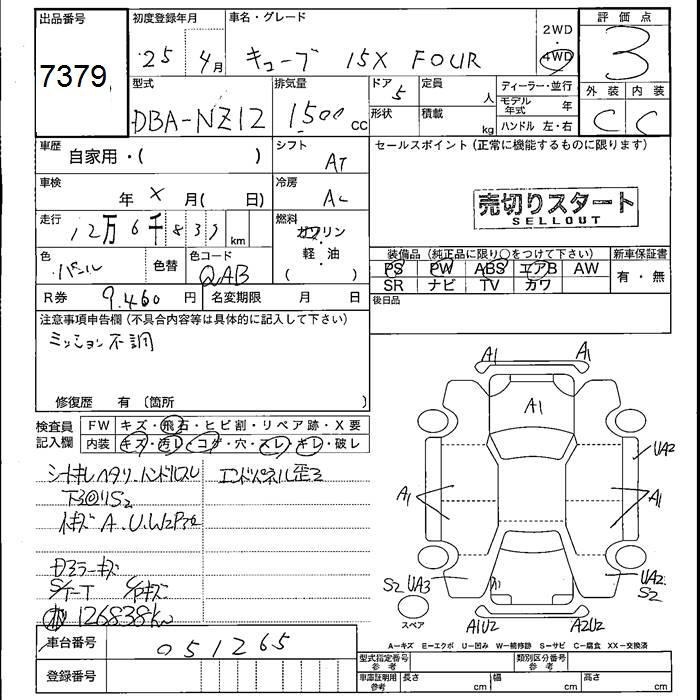 出品番号
7379
初度登録年月
25 4月
車名・グレード
キューブ 15X FOUR
2WD
4WD
評価点
3
外装 内装
C C
型式
DBA-NZ12
排気量
1500 CC
ドア 5
定員 人
形状
積載 kg
ディーラー・並行
モデル年式 年
ハンドル 左・右
車歴 自家用・( )
シフト AT
セールスポイント (正常に機能するものに限ります)
車検 年 X 月( 日)
冷房 AC
売切りスタート
SELLOUT
走行 12万6千837 km
燃料 ガソリン
軽・油
( )
色 パール
色替
色コード QAB
装備品 (純正品に限り○をつけて下さい)
新車保証書
PS PW ABS エアB AW
SR ナビ TV カワ
有・無
R券 9.460 円
名変期限 月 日
後日品
注意事項申告欄 (不具合内容等は具体的に記入して下さい)
ミッション不調
修復歴 有 (箇所 )
検査員記入欄
FW キズ・飛石・ヒビ割・リペア跡・X要
内装 キズ・汚レ・コゲ・穴・スレ・キレ・破レ
シートキレ ヘタリ ハンドルスレ
エンドパネル歪ミ
A.U.W2P
ドアミラーキズ
126838km
A1 A1
A1
UA2
A1 A1
S2 UA3
A1
UA2
S2
スペア
A1U2 A2U2
A=キズ E=エクボ U=凹み W=補修跡 S=サビ C=腐食 XX=交換済
車台番号 051265
登録番号
型式指定番号 参考
類別区分番号 参考
車庫証明用 参考
長さ cm
幅 cm
高さ cm